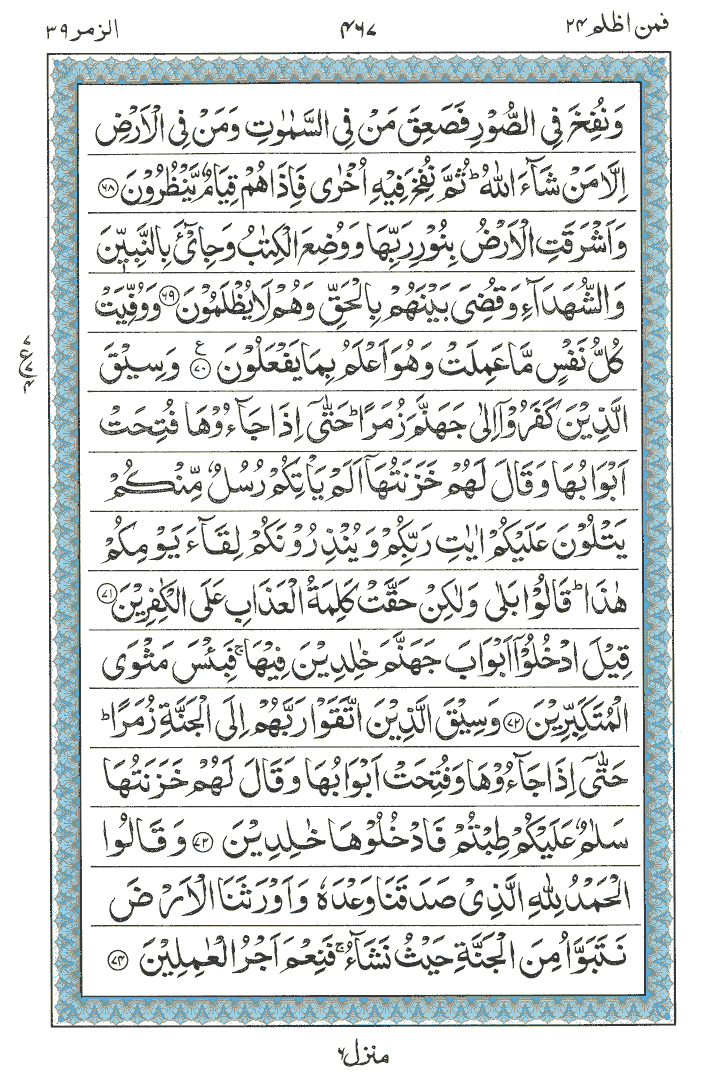 فمن اظلم ۲۴
۴۶۷
الزمر ۳۹
وَنُفِخَ فِی الصُّوْرِ فَصَعِقَ مَنْ فِی السَّمٰوٰتِ وَمَنْ فِی الْاَرْضِ
اِلَّا مَنْ شَآءَ اللّٰهُ ؕ ثُمَّ نُفِخَ فِیْهِ اُخْرٰی فَاِذَا هُمْ قِیَامٌ یَّنْظُرُوْنَ ﴿۶۸﴾
وَاَشْرَقَتِ الْاَرْضُ بِنُوْرِ رَبِّهَا وَوُضِعَ الْكِتٰبُ وَجِایْٓءَ بِالنَّبِیّٖنَ
وَالشُّهَدَآءِ وَقُضِیَ بَیْنَهُمْ بِالْحَقِّ وَهُمْ لَا یُظْلَمُوْنَ ﴿۶۹﴾ وَوُفِّیَتْ
كُلُّ نَفْسٍ مَّا عَمِلَتْ وَهُوَ اَعْلَمُ بِمَا یَفْعَلُوْنَ ﴿۷۰﴾ ع وَسِیْقَ
الَّذِیْنَ كَفَرُوْۤا اِلٰی جَهَنَّمَ زُمَرًا ؕ حَتّٰۤی اِذَا جَآءُوْهَا فُتِحَتْ
اَبْوَابُهَا وَقَالَ لَهُمْ خَزَنَتُهَاۤ اَلَمْ یَاْتِكُمْ رُسُلٌ مِّنْكُمْ
یَتْلُوْنَ عَلَیْكُمْ اٰیٰتِ رَبِّكُمْ وَیُنْذِرُوْنَكُمْ لِقَآءَ یَوْمِكُمْ
هٰذَا ؕ قَالُوْا بَلٰی وَلٰكِنْ حَقَّتْ كَلِمَةُ الْعَذَابِ عَلَی الْكٰفِرِیْنَ ﴿۷۱﴾
قِیْلَ ادْخُلُوْۤا اَبْوَابَ جَهَنَّمَ خٰلِدِیْنَ فِیْهَا ۚ فَبِئْسَ مَثْوَی
الْمُتَكَبِّرِیْنَ ﴿۷۲﴾ وَسِیْقَ الَّذِیْنَ اتَّقَوْا رَبَّهُمْ اِلَی الْجَنَّةِ زُمَرًا ؕ
حَتّٰۤی اِذَا جَآءُوْهَا وَفُتِحَتْ اَبْوَابُهَا وَقَالَ لَهُمْ خَزَنَتُهَا
سَلٰمٌ عَلَیْكُمْ طِبْتُمْ فَادْخُلُوْهَا خٰلِدِیْنَ ﴿۷۳﴾ وَقَالُوا
الْحَمْدُ لِلّٰهِ الَّذِیْ صَدَقَنَا وَعْدَهٗ وَاَوْرَثَنَا الْاَرْضَ
نَتَبَوَّاُ مِنَ الْجَنَّةِ حَیْثُ نَشَآءُ ۚ فَنِعْمَ اَجْرُ الْعٰمِلِیْنَ ﴿۷۴﴾
منزل ۶